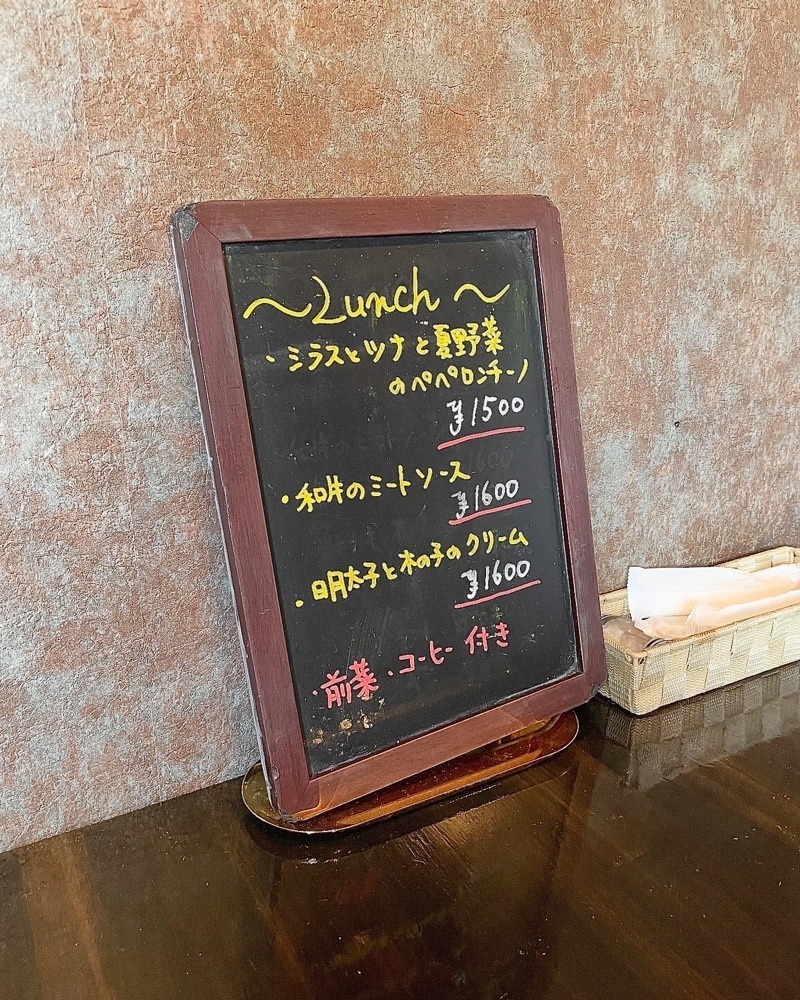 〜Lunch〜
・シラスとツナと夏野菜
のペペロンチーノ
¥1500
・和牛のミートソース
¥1600
・明太子と木の子のクリーム
¥1600
・前菜・コーヒー付き